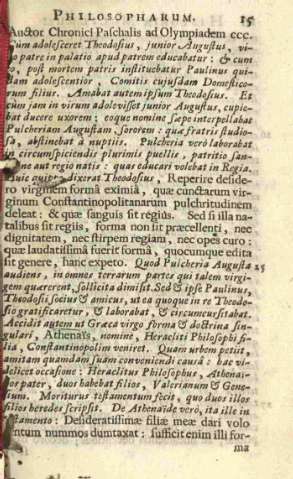 PHILOSOPHARUM. 15
Auctor Chronici Paschalis ad Olympiadem CCC.
Cum adolesceret Theodosius, junior Augustus, vi-
vo patre in palatio apud patrem educabatur: & cum
eo, post mortem patris instituebatur Paulinus qui-
dam adolescentior, Comitis cujusdam Domestico-
rum filius. Amabat autem ipsum Theodosius. Et
cum jam in virum adolevisset junior Augustus, cupie-
bat ducere uxorem: eoque nomine sæpe interpellabat
Pulcheriam Augustam, sororem: quæ fratris studio-
sa, abstinebat à nuptiis. Pulcheria verò laborabat
in circumspiciendis plurimis puellis, patritio san-
guine aut regio natis: quas educari volebat in Regia.
Huic dixerat Theodosius, Reperire deside-
ro virginem formâ eximiâ, quæ cunctarum vir-
ginum Constantinopolitanarum pulchritudinem
deleat: & quæ sanguis sit regius. Sed si illa na-
talibus sit regiis, forma non sit præcellenti, nec
dignitatem, nec stirpem regiam, nec opes curo:
quæ laudatissimâ fuerit formâ, quocumque edita
sit genere, hanc expeto. Quod Pulcheria Augusta 25
audiens, in omnes terrarum partes qui talem virgi-
nem quærerent, sollicita dimisit. Sed & ipse Paulinus,
Theodosii socius & amicus, ut ea quoque in re Theodo-
sio gratificaretur, & laborabat, & circumcursitabat.
Accidit autem ut Græca virgo forma & doctrina sin-
gulari, Athenaïs, nomine, Heracliti Philosophi fi-
lia, Constantinopolim veniret. Quam urbem petiit,
amitam quamdam suam conveniendi causâ: hac vi-
delicet occasione: Heraclitus Philosophus, Athenaï-
dos pater, duos habebat filios, Valerianum & Gene-
sium. Moriturus testamentum fecit, quo duos illos
filios heredes scripsit. De Athenaïde verò, ita ille in
testamento: Desideratissimæ filiæ meæ dari volo
centum nummos dumtaxat: sufficit enim illi for-
ma